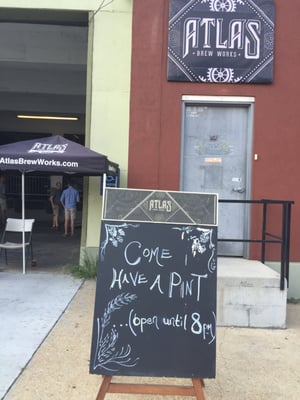 ATLAS
BREW WORKS
ATLAS
AtlasBrewWorks.com
ATLAS
COME
HAVE A PINT
...(open until 8pm)